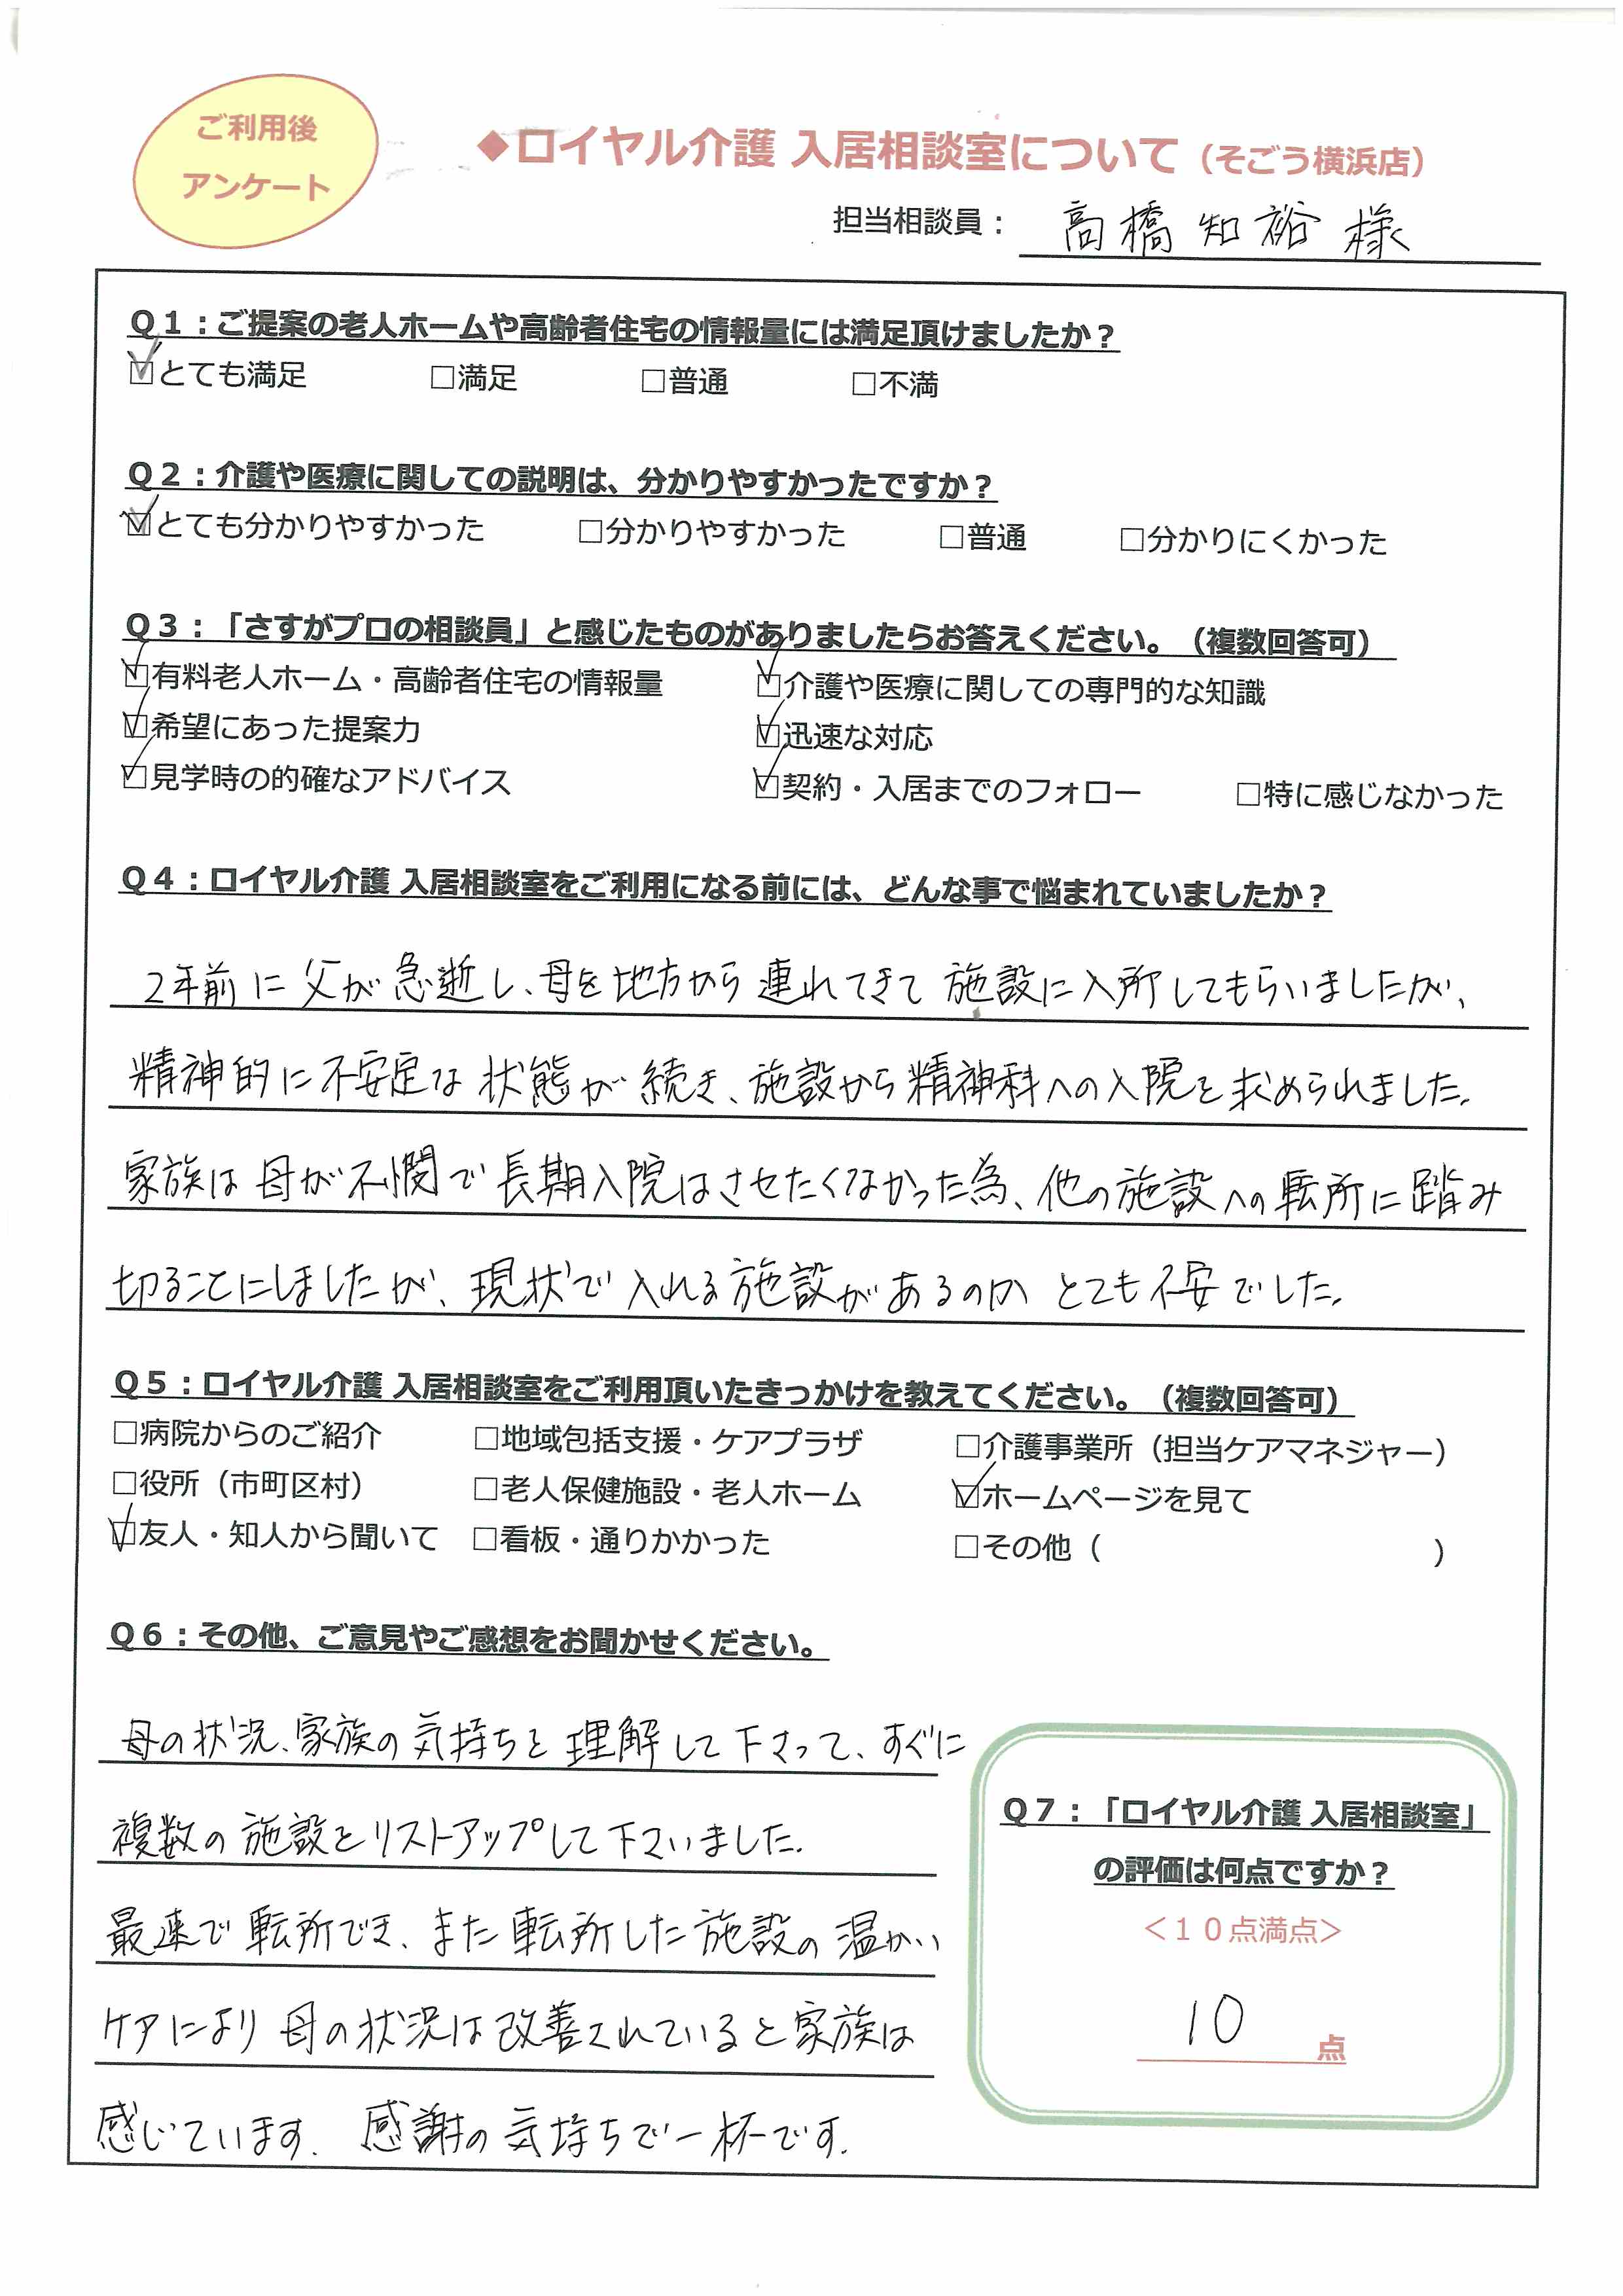 ご利用後
アンケート
◆ロイヤル介護 入居相談室について（そごう横浜店）
担当相談員： 高橋 知裕 様
Q１：ご提案の老人ホームや高齢者住宅の情報量には満足頂けましたか？
☑とても満足 □満足 □普通 □不満
Q２：介護や医療に関しての説明は、分かりやすかったですか？
☑とても分かりやすかった □分かりやすかった □普通 □分かりにくかった
Q３：「さすがプロの相談員」と感じたものがありましたらお答えください。（複数回答可）
☑有料老人ホーム・高齢者住宅の情報量 ☑介護や医療に関しての専門的な知識
☑希望にあった提案力 ☑迅速な対応
☑見学時の的確なアドバイス ☑契約・入居までのフォロー □特に感じなかった
Q４：ロイヤル介護 入居相談室をご利用になる前には、どんな事で悩まれていましたか？
2年前に父が急逝し、母を地方から連れてきて施設に入所してもらいましたが、
精神的に不安定な状態が続き、施設から精神科への入院を求められました。
家族は母が不憫で長期入院はさせたくなかった為、他の施設への転所に踏み
切ることにしましたが、現状で入れる施設があるのかとても不安でした。
Q５：ロイヤル介護 入居相談室をご利用頂いたきっかけを教えてください。（複数回答可）
□病院からのご紹介 □地域包括支援・ケアプラザ □介護事業所（担当ケアマネジャー）
□役所（市町区村） □老人保健施設・老人ホーム ☑ホームページを見て
☑友人・知人から聞いて □看板・通りかかった □その他（ ）
Q６：その他、ご意見やご感想をお聞かせください。
母の状況、家族の気持ちを理解して下さって、すぐに
複数の施設をリストアップして下さいました。
最速で転所でき、また転所した施設の温かい
ケアにより母の状況は改善されていると家族は
感じています。感謝の気持ちで一杯です。
Q７：「ロイヤル介護 入居相談室」
の評価は何点ですか？
＜１０点満点＞
10 点